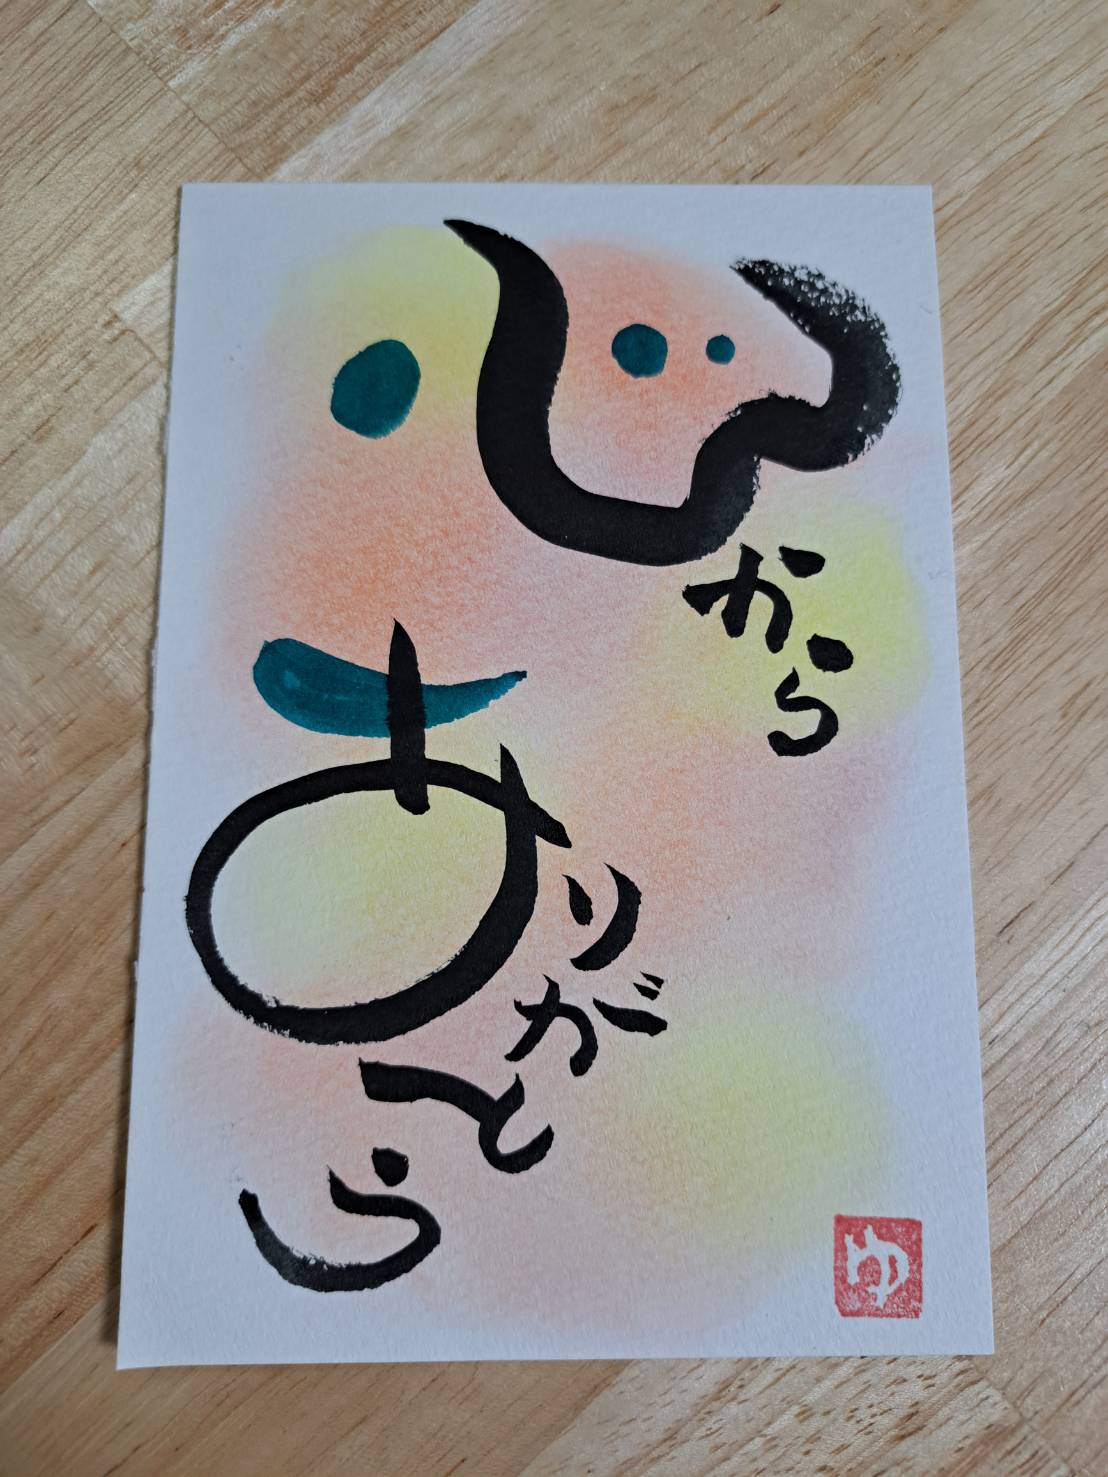 心から
ありがとう
ゆ